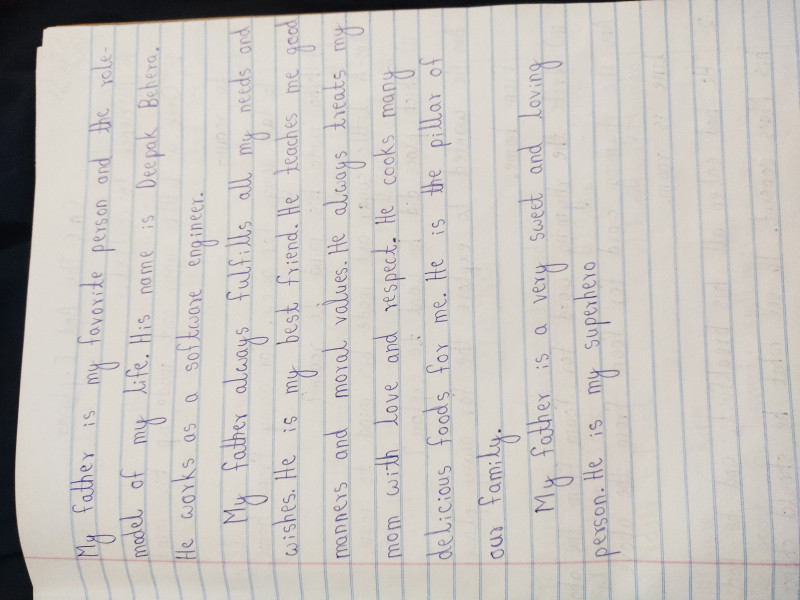 My father is my favorite person and the role-
model of my life. His name is Deepak Behera.
He works as a software engineer.
My father always fulfills all my needs and
wishes. He is my best friend. He teaches me good
manners and moral values. He always treats my
mom with love and respect. He cooks many
delicious foods for me. He is the pillar of
our family.
My father is a very sweet and loving
person. He is my superhero